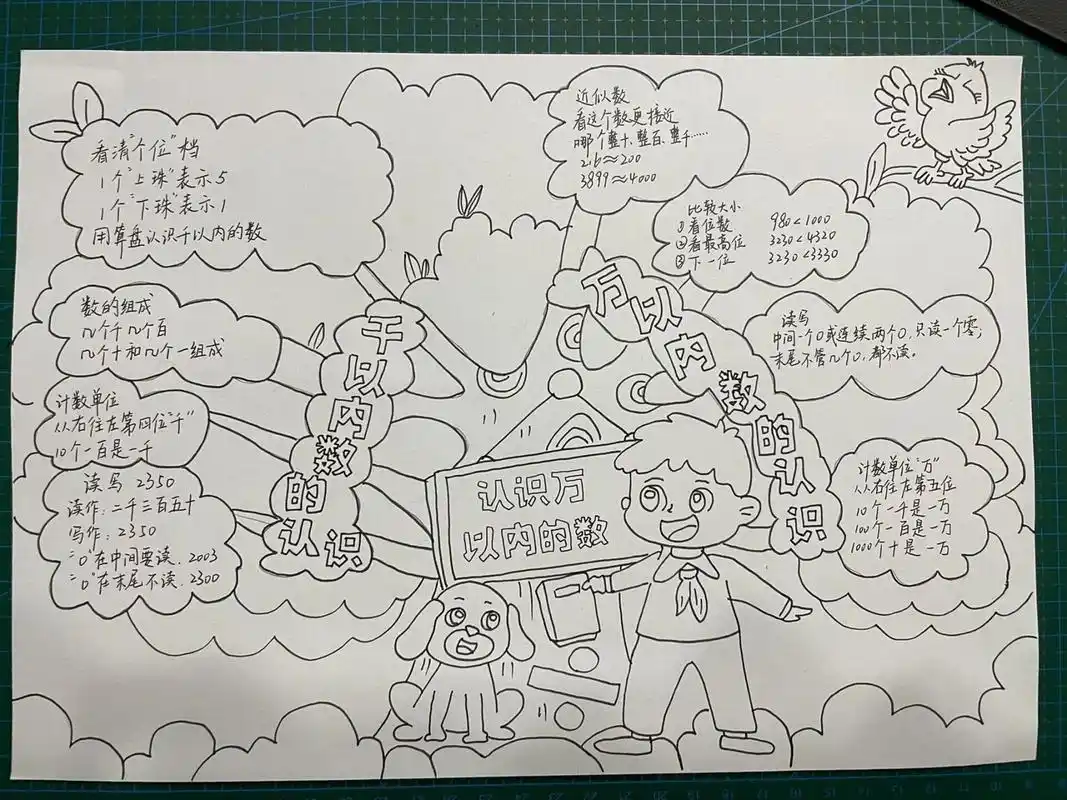 看清“个位”档
1个“上珠”表示5
1个“下珠”表示1
用算盘认识千以内的数
数的组成
几个千几个百
几个十和几个一组成
计数单位
从右往左第四位“千”
10个一百是一千
读写 2350
读作：二千三百五十
写作：2350
“0”在中间要读．2003
“0”在末尾不读．2300
千以内数的认识
认识万
以内的数
万以内数的认识
近似数
看这个数更接近
哪个整十、整百、整千……
216≈200
3899≈4000
比较大小
①看位数 980<1000
②看最高位 3230<4320
③下一位 3230<3330
读写
中间一个0或连续两个0，只读一个零；
末尾不管几个0，都不读。
计数单位“万”
从右往左第五位
10个一千是一万
100个一百是一万
1000个十是一万